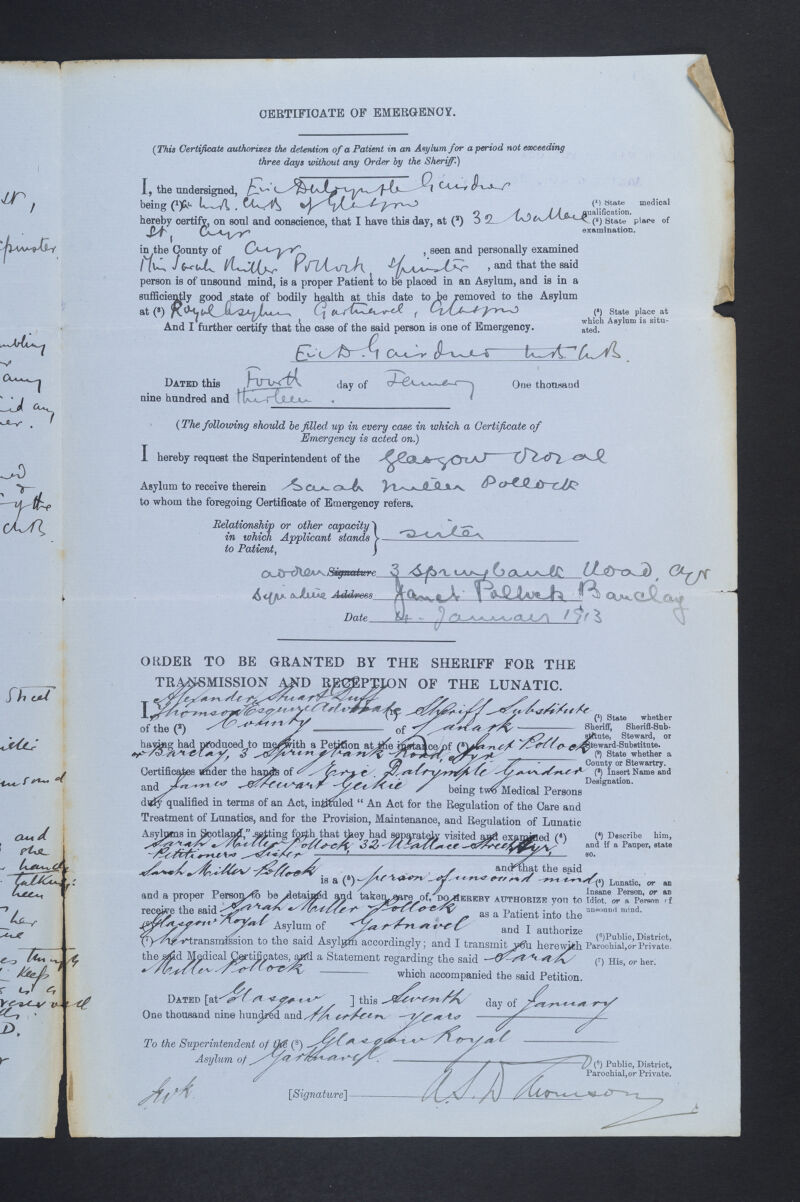 St,
Spinster
mbling
any
id any
er.
ed
y the
Ch.B.
Street
iller
unsound
and
she
hands
talking:
been
her
es through
keep
is a
reserved
D.
CERTIFICATE OF EMERGENCY.
(This Certificate authorizes the detention of a Patient in an Asylum for a period not exceeding
three days without any Order by the Sheriff.)
I, the undersigned, Eric Dalrymple Gairdner
being (¹) a M.B. Ch.B. of Glasgow
(¹) State medical
qualification.
hereby certify, on soul and conscience, that I have this day, at (²) 32 Wallace
(²) State place of
examination.
St, Ayr
in the County of Ayr, seen and personally examined
Miss Sarah Miller Pollock, Spinster, and that the said
person is of unsound mind, is a proper Patient to be placed in an Asylum, and is in a
sufficiently good state of bodily health at this date to be removed to the Asylum
at (³) Royal Asylum, Gartnavel, Glasgow
(³) State place at
which Asylum is situ-
ated.
And I further certify that the case of the said person is one of Emergency.
Eric D. Gairdner M.B. Ch.B.
DATED this Fourth day of January One thousand
nine hundred and thirteen.
(The following should be filled up in every case in which a Certificate of
Emergency is acted on.)
I hereby request the Superintendent of the Glasgow Royal
Asylum to receive therein Sarah Miller Pollock
to whom the foregoing Certificate of Emergency refers.
Relationship or other capacity
in which Applicant stands
to Patient,
sister
address Signature 3 Springbank Road, Ayr
Signature Address Janet Pollock Barclay
Date 4. January 1913
ORDER TO BE GRANTED BY THE SHERIFF FOR THE
TRANSMISSION AND RECEPTION OF THE LUNATIC.
I, Alexander Stuart Duff
Thomson Esquire Advocate (¹) Sheriff Substitute
of the (²) County of Lanark
(¹) State whether
Sheriff, Sheriff-Sub-
stitute, Steward, or
Steward-Substitute.
having had produced to me with a Petition at the instance of (³) Janet Pollock
or Barclay, 3 Springbank Road, Ayr
(²) State whether a
County or Stewartry.
Certificates under the hands of Eric Dalrymple Gairdner
(³) Insert Name and
Designation.
and James Stewart Geikie being two Medical Persons
duly qualified in terms of an Act, intituled "An Act for the Regulation of the Care and
Treatment of Lunatics, and for the Provision, Maintenance, and Regulation of Lunatic
Asylums in Scotland," setting forth that they had separately visited and examined (⁴)
(⁴) Describe him,
and if a Pauper, state
so.
Sarah Miller Pollock, 32 Wallace Street, Ayr,
Petitioners Sister
and that the said
Sarah Miller Pollock is a (⁵) person of unsound mind
(⁵) Lunatic, or an
Insane Person, or an
Idiot, or a Person of
unsound mind.
and a proper Person to be detained and taken care of, DO HEREBY AUTHORIZE you to
receive the said Sarah Miller Pollock as a Patient into the
(⁶) Glasgow Royal Asylum of Gartnavel and I authorize
(⁶) Public, District,
Parochial, or Private.
(⁷) her transmission to the said Asylum accordingly; and I transmit you herewith
(⁷) His, or her.
the said Medical Certificates, and a Statement regarding the said Sarah
Miller Pollock which accompanied the said Petition.
DATED [at Glasgow ] this Seventh day of January
One thousand nine hundred and thirteen years
To the Superintendent of the (⁸) Glasgow Royal
Asylum of Gartnavel.
(⁸) Public, District,
Parochial, or Private.
[Signature] A. S. D. Thomson